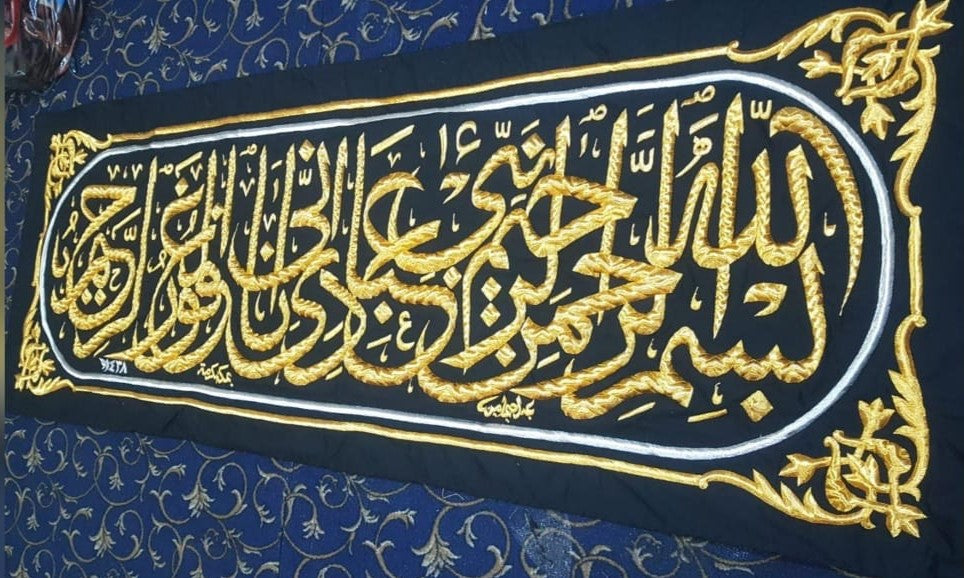 بِسْمِ اللّٰهِ الرَّحْمٰنِ الرَّحِيْمِ
نَبِّئْ عِبَادِيْ اَنِّيْ اَنَا الْغَفُوْرُ الرَّحِيْمُ